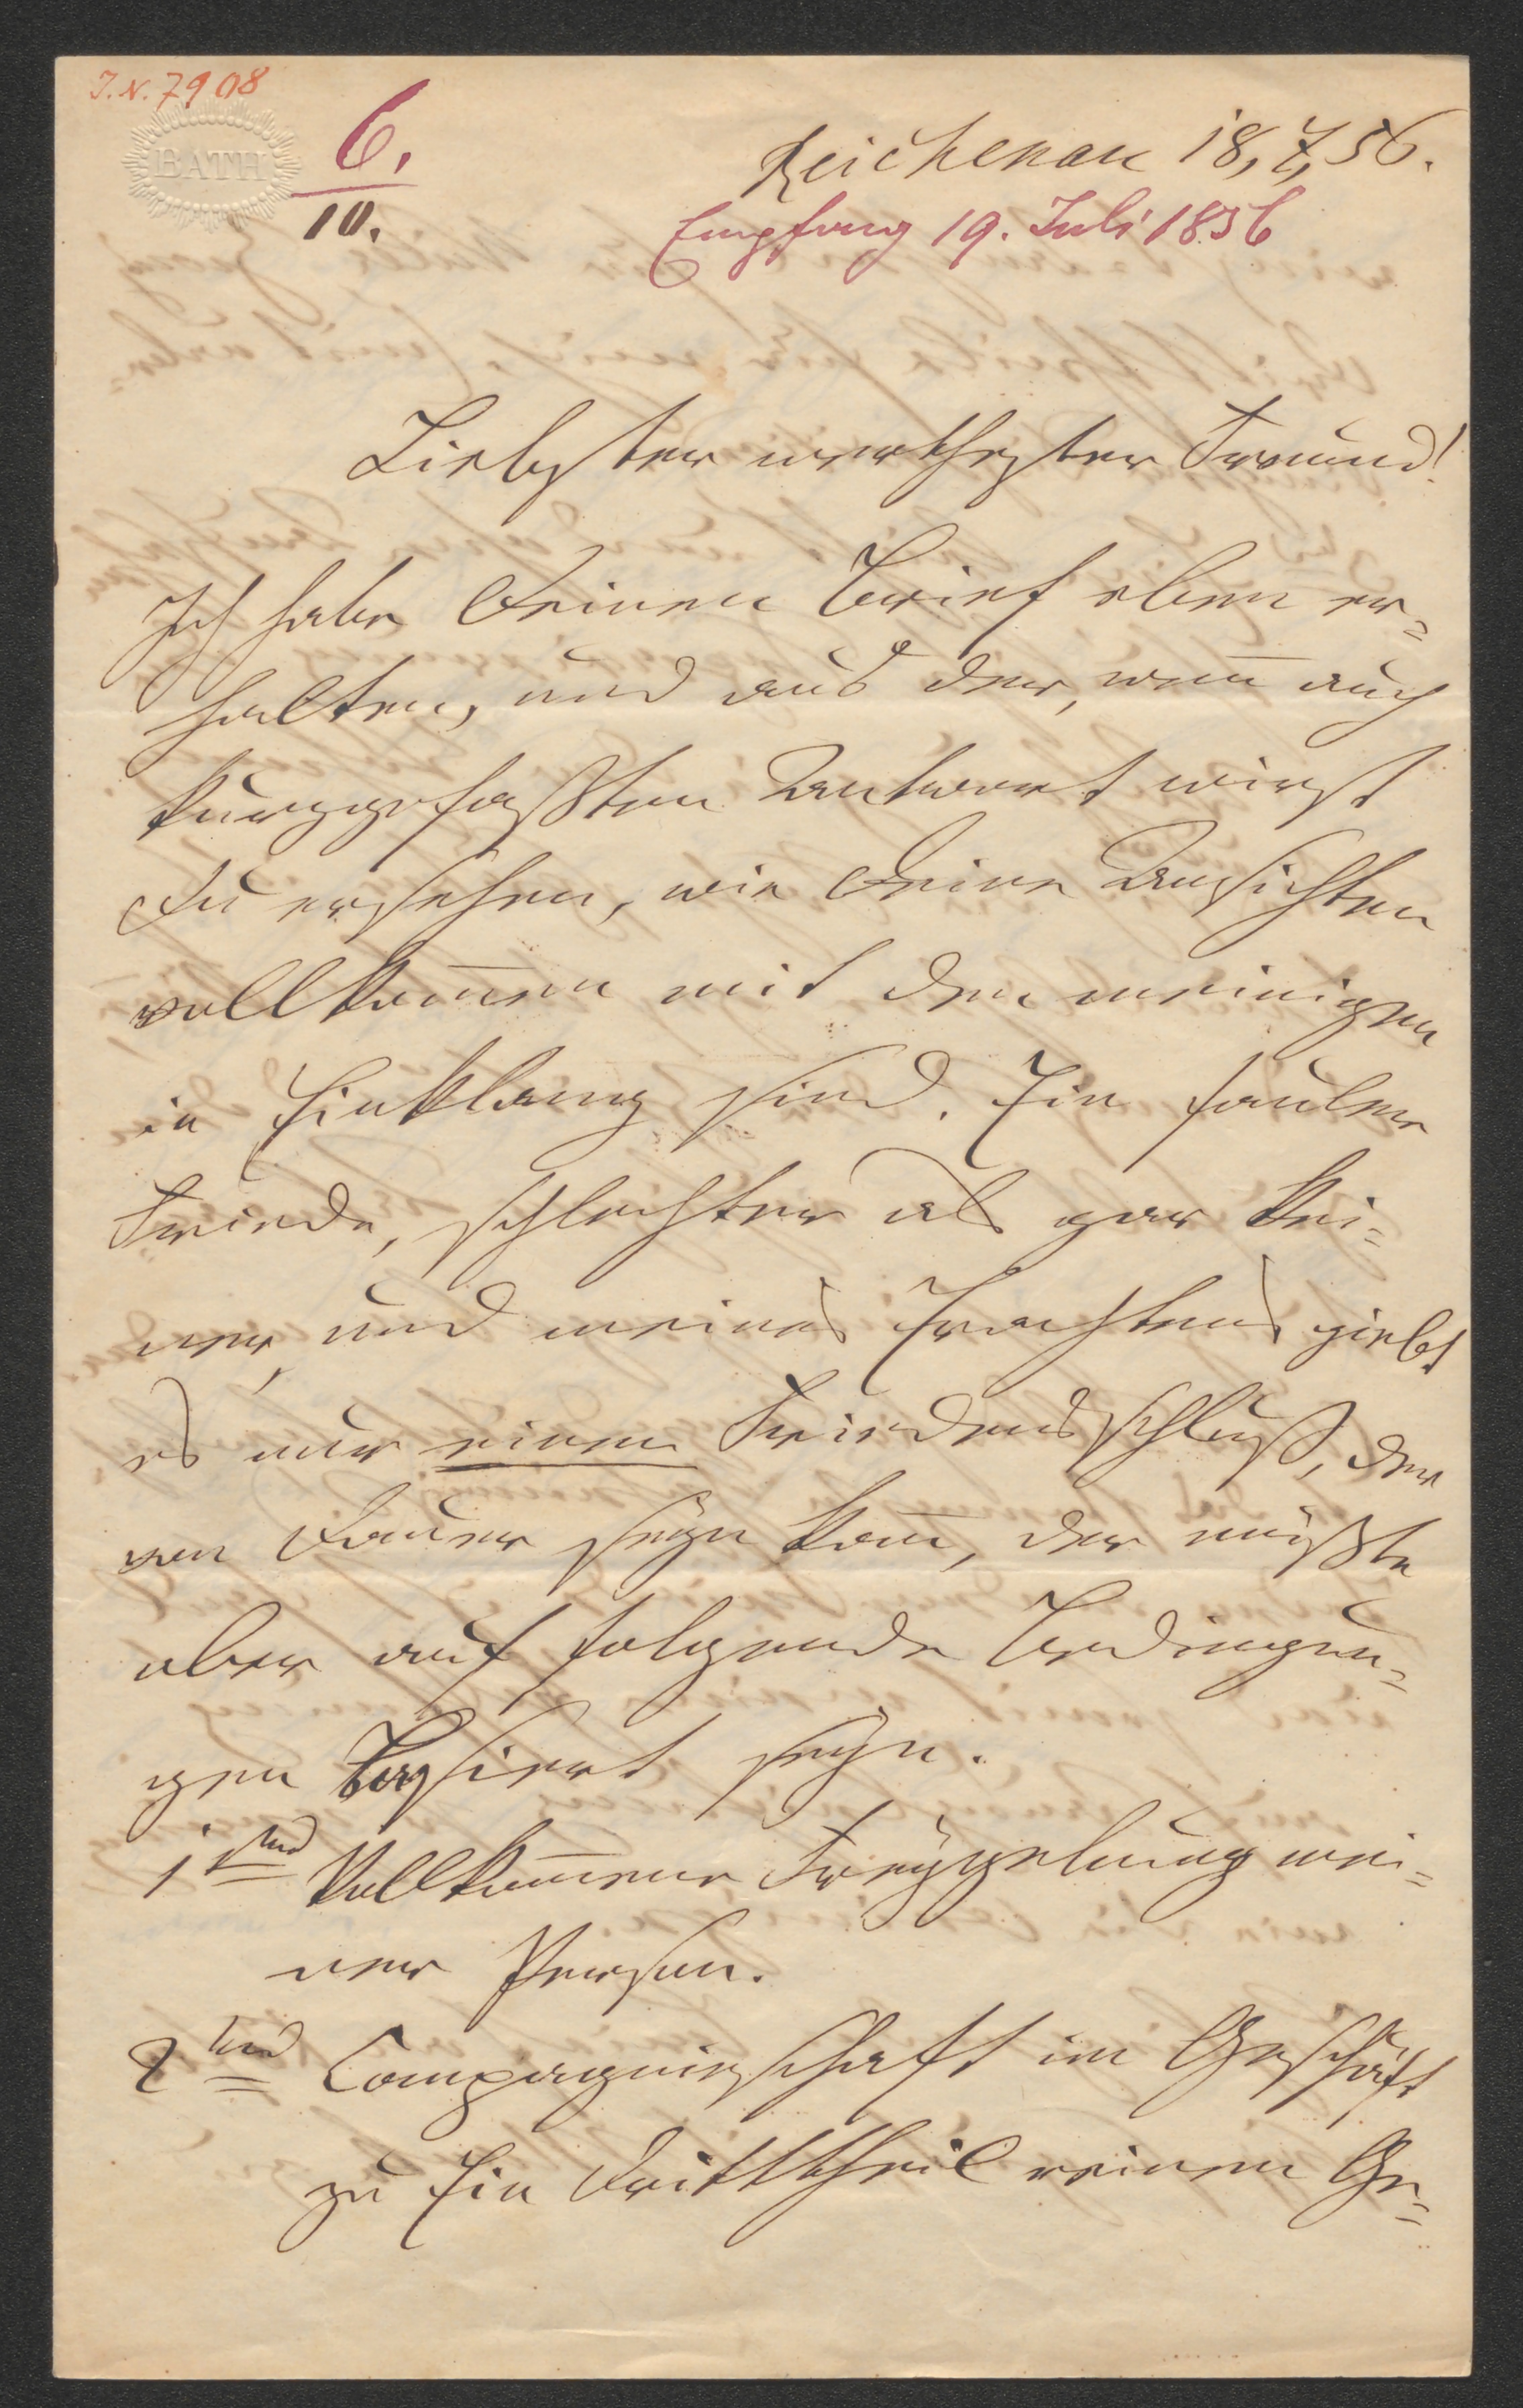 J.N. 7908
BATH
6.
10.
Reichenau 18, 7, 56.
Empfang 19. Juli 1856
Liebster werthester Freund!
Ich habe Deinen Brief eben er=
halten, und aus der, wen̄ auch
kurzgefaßten Antwort wirst
Du ersehen, wie Deine Ansichten
vollkom̄en mit den meinigen
in Einklang sind. Ein fauler
Friede, schlechter als gar kei=
ner, und meines Erachtens giebt
es nur einen Friedensschluß, der
von Dauer seÿn kan̄, der müßte
aber auf folgende Bedingun=
gen basiert seÿn.
1tens Vollkom̄ene Freÿgebung mei=
ner Person.
2tens Compagnieschaft im Geschäft
zu Ein Drittheil reinen Ge=